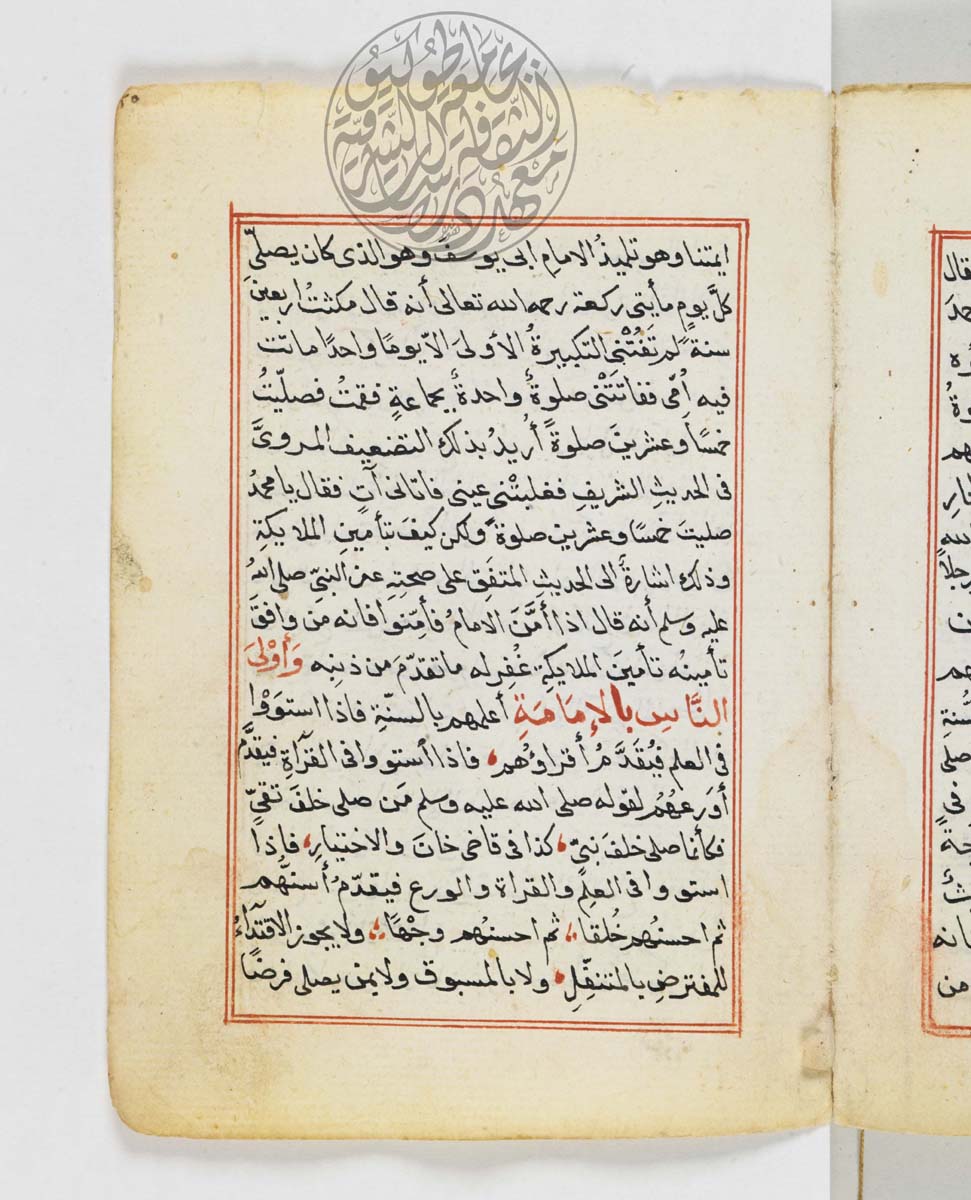 ايمتنا وهو تلميذُ الامام ابى يوسفَ وهو الذى كان يصلّى
كلَّ يومٍ مأيتى ركعة رحمه الله تعالى أنه قال مكثتُ اربعينَ
سنةً لم تَفُتْنى التكبيرةُ الأولىَ الاّ يومًا واحدًا ماتت
فيه اُمّى ففاتَتْنى صلوةٌ واحدةٌ بجماعةٍ فقمتُ فصلّيتُ
خمسًا وعشرينَ صلوةً أُريدُ بذلك التضعيف المروىَّ
فى الحديثِ الشريفِ فغلبتْنى عينى فأتانى آتٍ فقال يا محمدُ
صليتَ خمسًا وعشرين صلوةً ولكن كيفَ بتأمينِ الملايكةِ
وذلك اشارةٌ الى الحديثِ المتفَقِ على صحتِهِ عن النبىّ صلى اللهُ
عليه وسلم أنه قال اذا أمَّنَ الامامُ فأمِّنوا فانه من وافقَ
تأمينُه تأمينَ الملايكةِ غُفِر له ما تقدّمَ من ذنبِه وَأَوْلىَ
النَّاسِ بالإمَامَةِ أعلمهم بالسنّةِ فاذا استوَوْا
فى العلم فيُقَدَّمُ أقراؤُهُم، فاذا أستووا فى القرآةِ فيقدَّم
أورَعهُمُ لقوله صلى الله عليه وسلم مَن صلى خلفَ تقىّ
فكأنما صلى خلفَ نبىّ، كذا فى قاضى خانَ والاختيارِ، فاذا
استووا فى العلِم والقرأة والورع فيقدّمُ أسنُّهُم
ثم احسنُهم خُلقا،، ثم احسنُهم وجْهًا،، ولا يجوز الاقتدآءُ
للمفترضِ بالمتنفّلِ، ولا بالمسبوق ولا بمن يصلى فرضًا